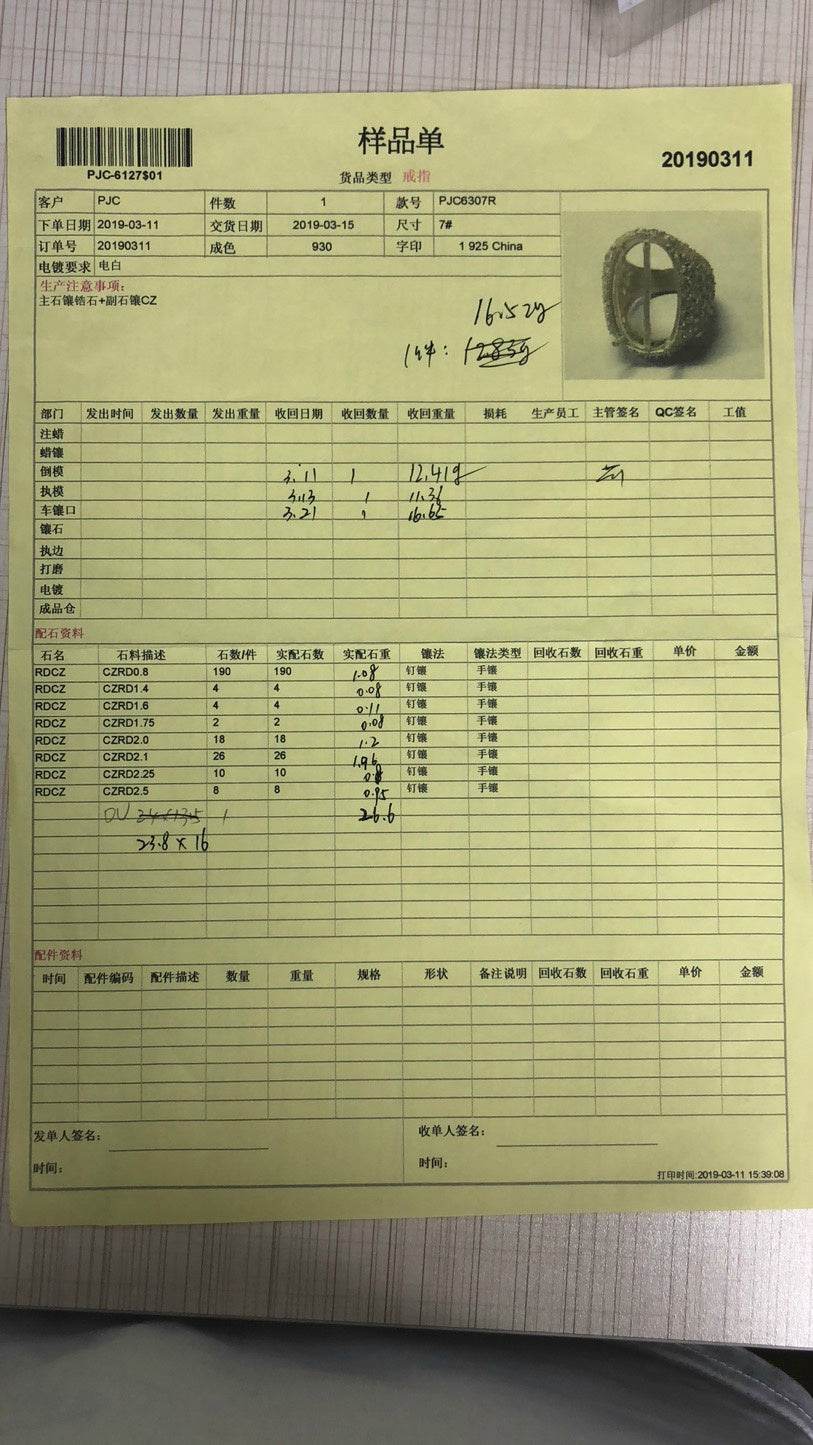 样品单
20190311
PJC-6127$01
货品类型 戒指
客户 PJC 件数 1 款号 PJC6307R
下单日期 2019-03-11 交货日期 2019-03-15 尺寸 7#
订单号 20190311 成色 930 字印 1 925 China
电镀要求 电白
生产注意事项:
主石镶锆石+副石镶CZ
16.52g
1件:
部门 发出时间 发出数量 发出重量 收回日期 收回数量 收回重量 损耗 生产员工 主管签名 QC签名 工值
注蜡
蜡镶
倒模 3.11 1 12.41g
执模 3.13 1 11.36
车镶口 3.21 1 16.65
镶石
执边
打磨
电镀
成品仓
配石资料
石名 石料描述 石数/件 实配石数 实配石重 镶法 镶法类型 回收石数 回收石重 单价 金额
RDCZ CZRD0.8 190 190 1.08 钉镶 手镶
RDCZ CZRD1.4 4 4 0.08 钉镶 手镶
RDCZ CZRD1.6 4 4 0.11 钉镶 手镶
RDCZ CZRD1.75 2 2 0.08 钉镶 手镶
RDCZ CZRD2.0 18 18 1.2 钉镶 手镶
RDCZ CZRD2.1 26 26 1.96 钉镶 手镶
RDCZ CZRD2.25 10 10 钉镶 手镶
RDCZ CZRD2.5 8 8 0.95 钉镶 手镶
OV 24×13.5 1 26.6
23.8×16
配件资料
时间 配件编码 配件描述 数量 重量 规格 形状 备注说明 回收石数 回收石重 单价 金额
发单人签名: 收单人签名:
时间: 时间:
打印时间:2019-03-11 15:39:08